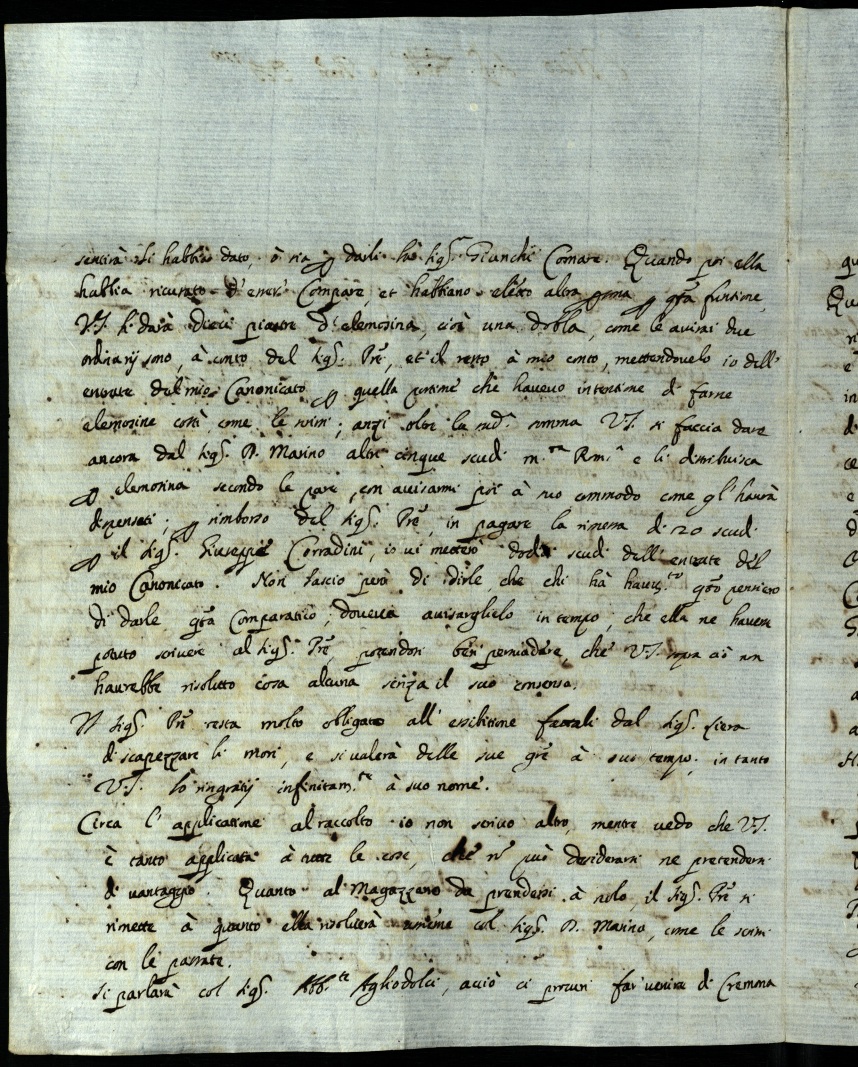 sentirà li habbia dato, ò sia p darli la Sig.ra Bianchi Comare. Quando poi ella
habbia ricusato d'esser Compare, et habbiano eletto altra p q.ta funtione,
V.S. li darà dieci piastre d'elemosina, cioè una dobla, come le avisai due
ordinarij sono, à conto del Sig.r Pre, et il resto à mio conto, mettendovelo io dell'
entrate del mio Canonicato p quella portione che havevo intentione di farne
elemosine costì come le scrissi; anzi oltre la sud.a somma V.S. si faccia dare
ancora dal Sig.r D. Marino altri cinque scudi m.ta Rom.a e li distribuisca
p elemosina secondo le pare, con avisarmi poi à suo commodo come gl'havrà
dispensati; p rimborso del Sig.r Pre, in pagare la rimessa di 20 scudi
p il Sig.r Giuseppe Corradini, io vi metterò dodici scudi dell'entrate del
mio Canonicato. Non lascio però di dirle, che chi hà havuto q.to pensiero
di darle q.ta Comparatico, doveva avisarglielo in tempo, che ella ne havesse
potuto scrivere al Sig.r Pre, potendosi ben persuadere, che V.S. sopra ciò non
havrebbe risoluto cosa alcuna senza il suo consenso.
Il Sig.r Pre resta molto obligato all'essibitione fattali dal Sig.r Fiera
di scapezzare li mori, e si valerà delle sue gre à suo tempo, in tanto
V.S. lo ringratij infinitam.te à suo nome.
Circa l'applicatione al raccolto io non scrivo altro, mentre vedo che V.S.
è tanto applicata à tutte le cose, che nō può desiderarsi ne pretendersi
di vantaggio. Quanto al Magazzeno da prendersi à nolo, il Sig.r Pre si
rimette à quanto ella risolverà assieme col Sig.r D. Marino, come le scrissi
con le passate.
Si parlarà col Sig.r Abb.te Agliodolci, acciò ci procuri far venire di Cremma